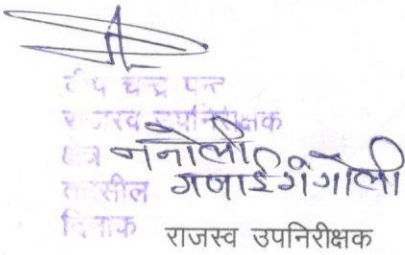 दीप चन्द्र पन्त
राजस्व उपनिरीक्षक
क्षेत्र ननोली
तहसील गणाई गंगोली
दिनांक
राजस्व उपनिरीक्षक